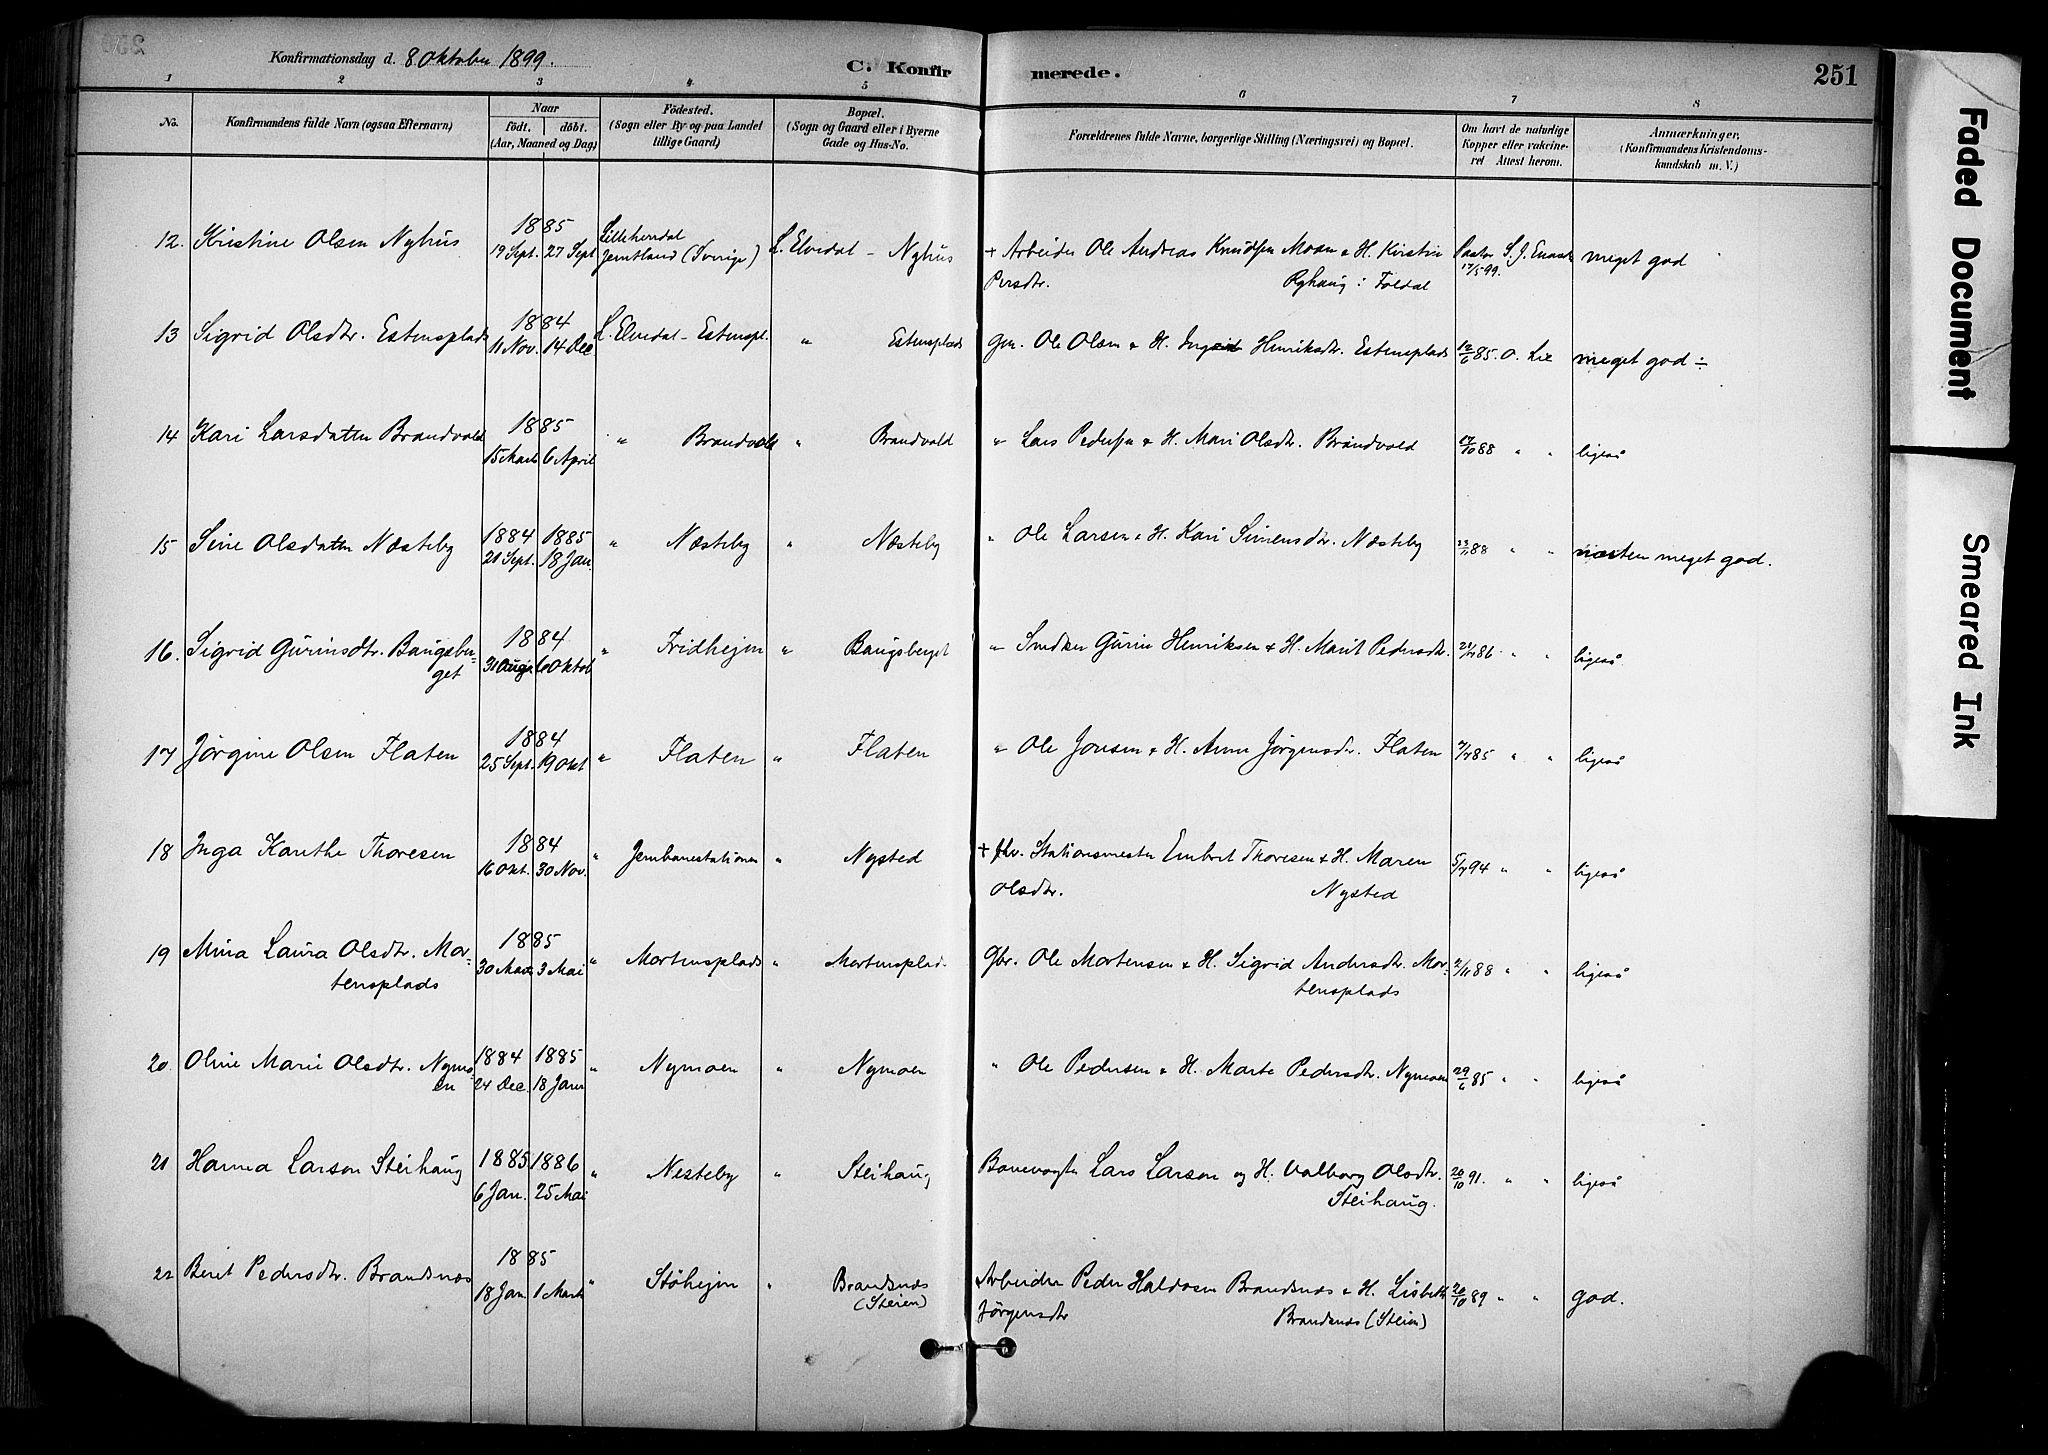 Konfirmationsdag d. 8 Oktober 1899.
C. Konfir merede.
251
1 2 3 4 5 6 7 8
No.
Konfirmandens fulde Navn (ogsaa Efternavn)
Naar
födt. döbt.
(Aar, Maaned og Dag)
Födested.
(Sogn eller By og paa Landet
tillige Gaard)
Bopæl.
(Sogn og Gaard eller i Byerne
Gade og Hus-No.
Forældrenes fulde Navne, borgerlige Stilling (Næringsvei) og Bopæl.
Om havt de naturlige
Kopper eller vakcine-
ret Attest herom.
Anmærkninger.
(Konfirmandens Kristendoms-
kundskab m. V.)
1885 Lilleherdal
12. Kristine Olsen Nyhus 19 Sept. 27 Sept Jemtland (Sverige) L. Elvedal - Nyhus + Arbeider Ole Andreas Knudsen Moen & H. Kirstin Pastor S. J. meget god
Persdtr. Ryhaug i Foldal 17/5 99.
1884
13 Sigrid Olsdtr. Estensplads 11 Nov. 14 Dec L. Elvedal - Estenspl. " Estensplads Gm. Ole Olsen & H. Ingrid Henriksdtr. Estensplads 12/6 85. O. Lie meget god ÷
1885
14 Kari Larsdatter Brandvold 15 Marts 6 April " Brandvold " Brandvold " Lars Pedersen & H. Mari Olsdtr. Brandvold 17/10 88 " " ligeså
1884 1885
15 Sine Olsdatter Næsteby 21 Sept. 18 Jan. " Næsteby " Næsteby " Ole Larsen & H. Kari Simensdtr. Næsteby 23/11 88 " " næsten meget god.
1884
16. Sigrid Gurinsdtr. Baugsber- 31 Augu 6 Oktob " Fridhejm " Baugsberget " Snedker Gurin Henriksen & H. Marit Pedersdtr. 86 " " ligeså
get
1884
17 Jørgine Olsen Flaten 25 Sept. 19 Okt " Flaten " Flaten " Ole Jonsen & H. Anne Jørgensdtr. Flaten 85 " " ligeså
1884
18 Inga Kanthe Thoresen 16 Okt. 30 Nov. " Jernbanestationen " Nysted + fhv. Stationsmester Embret Thoresen & H. Maren 5/7 94 " " ligeså
Olsdtr. Nysted
1885
19 Mina Laura Olsdtr. Mor- 30 Marts 3 Mai " Mortensplads " Mortensplad. Gbr. Ole Mortensen & H. Sigrid Andersdtr. Mor- 2/11 88 " " ligeså
tensplads tensplads
1884 1885
20 Oline Marie Olsdtr. Nymo- 24 Dec. 18 Janu " Nymoen " Nymoen " Ole Pedersen & H. Marte Pedersdtr. Nymoen 29/6 85 " " ligeså
en
1885 1886
21 Hanna Larson Steihaug 6 Jan. 25 Mai " Nesteby " Steihaug Banevogter Lars Larson og H. Valborg Olsdtr. 20/10 91. " " ligeså
Steihaug.
1885
22 Beret Pedersdtr. Brandsnæs 18 Jan. 1 Marts " Stöhejm " Brandsnæs Arbeider Peder Haldosen Brandsnæs & H. Lisbeth 20/10 89 " " god.
(Steien) Jørgensdtr Brandsnæs (Steien)
Faded Document
Smeared Ink